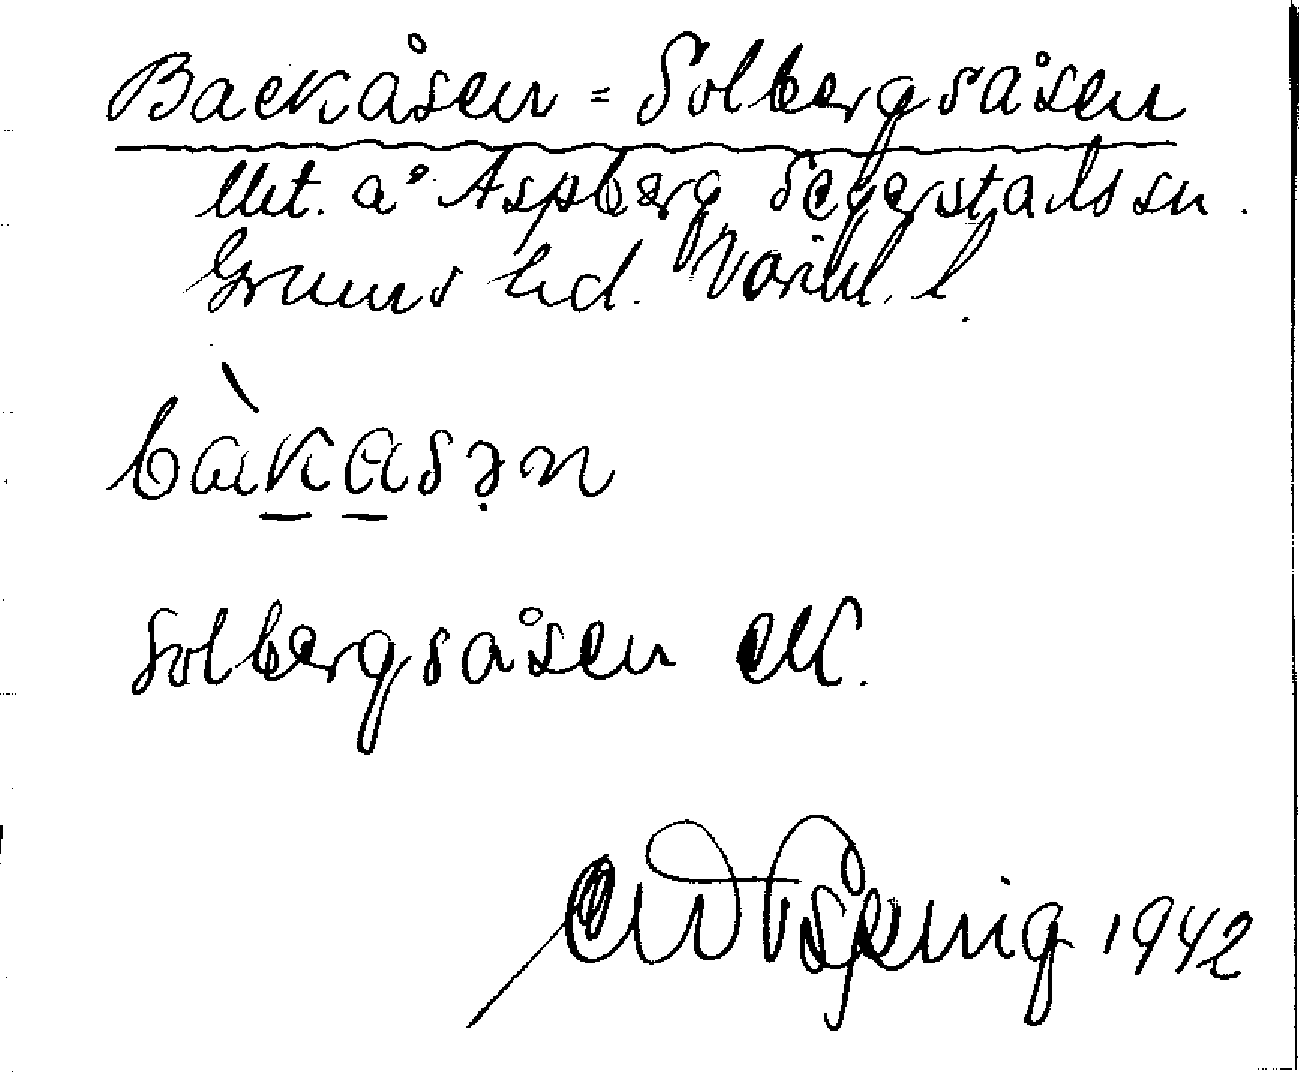 Backåsen = Solbergsåsen
Utt. å Aspberg Segerstads sn.
Grums hd. Värml. l.
bàkasən
Solbergsåsen EK.
1942